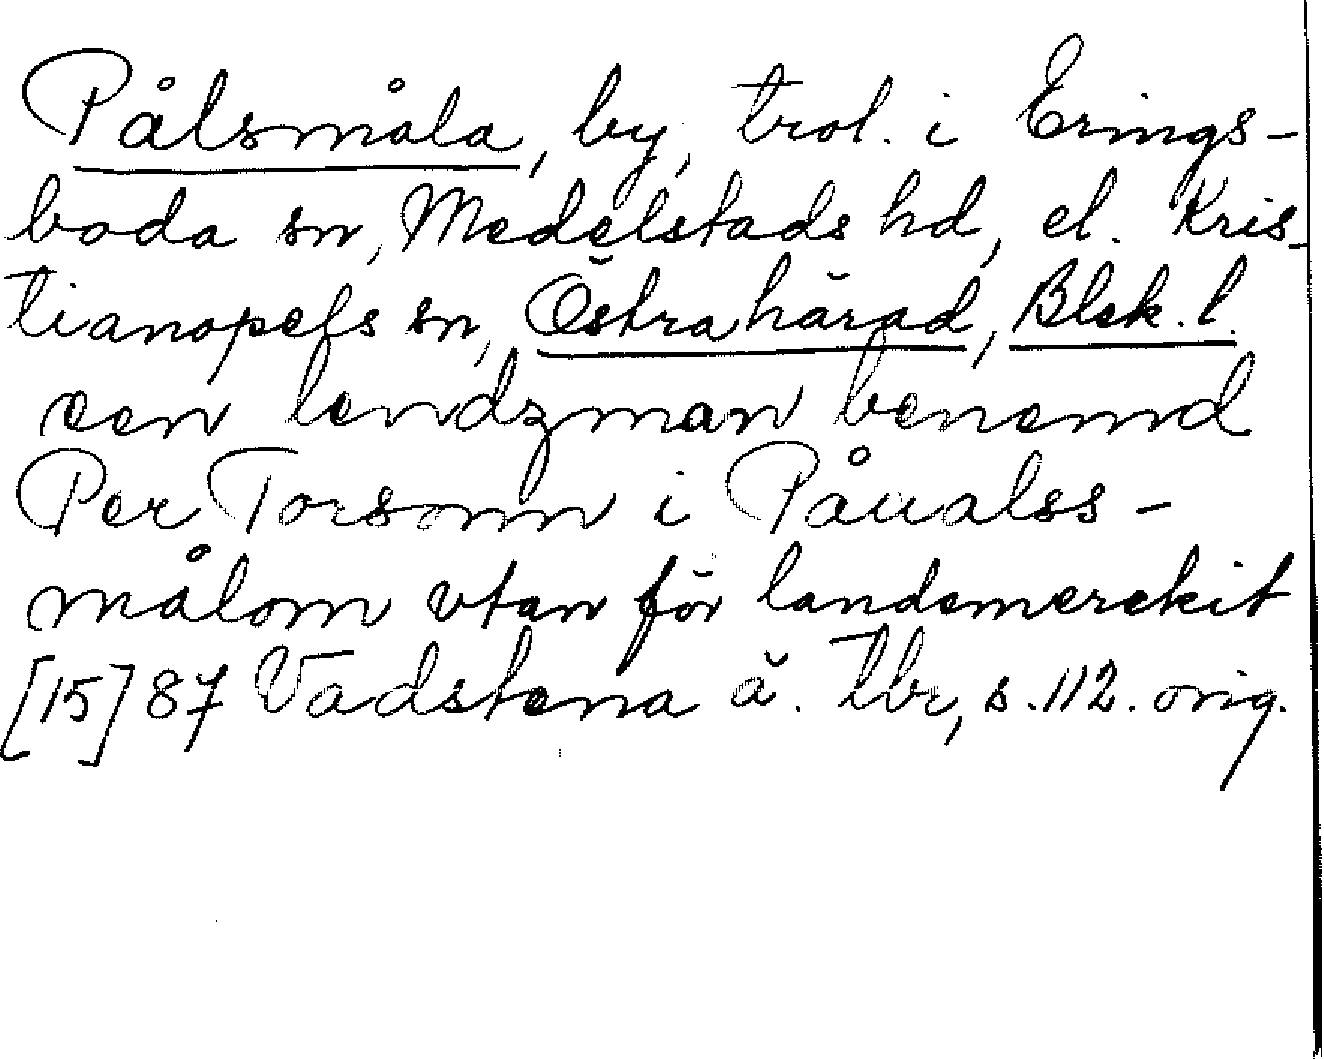 Pålsmåla, by, trol. i Erings-
boda sn, Medelstads hd, el. Kris-
tianopels sn, Östra härad, Blek. l.
een lendzman benemd
Per Torsonn i Påualss-
målom vtan för landemerckit
[15]87 Vadstena ä. tbr, s. 112. orig.